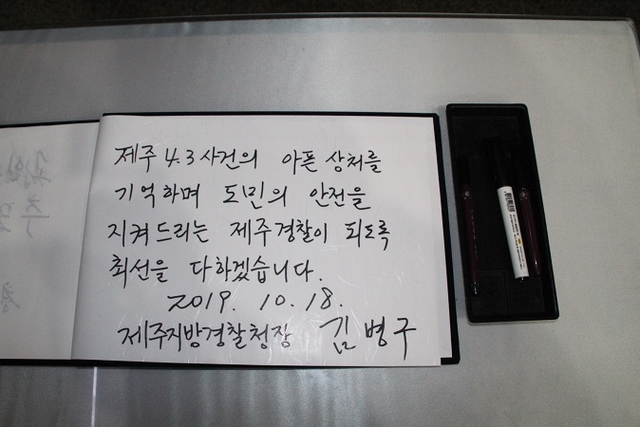 제주 4.3 사건의 아픈 상처를
기억하며 도민의 안전을
지켜드리는 제주경찰이 되도록
최선을 다하겠습니다.
2019. 10. 18.
제주지방경찰청장 김병구